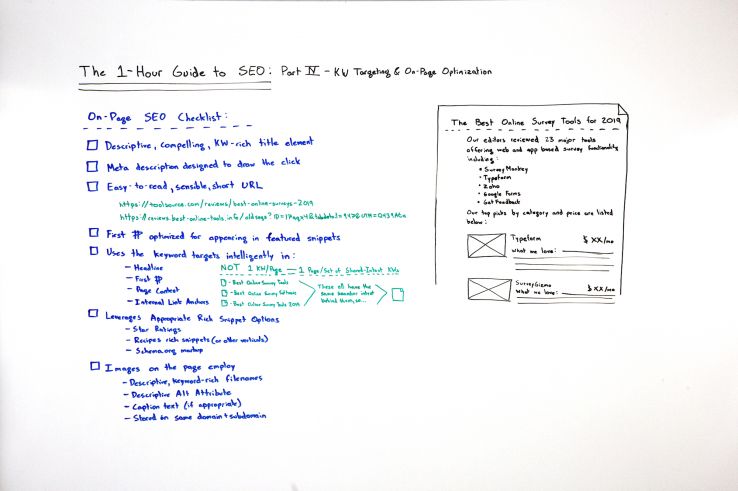 The 1-Hour Guide to SEO: Part IV - KW Targeting & On-Page Optimization
On-Page SEO Checklist:
Descriptive, compelling, KW-rich title element
Meta description designed to draw the click
Easy-to-read, sensible, short URL
https://toolsource.com/reviews/best-online-surveys-2019
First ¶ optimized for appearing in featured snippets
Uses the keyword targets intelligently in:
- Headline
- First ¶
- Page Content
- Internal Link Anchors
NOT 1 KW/Page = 1 Page/Set of Shared-Intent KWs
- Best Online Survey Tools
- Best Online Survey Software
- Best Online Survey Tools 2019
These all have the
same searcher intent
behind them, so...
Leverages Appropriate Rich Snippet Options
- Star Ratings
- Recipes rich snippets (or other verticals)
- Schema.org markup
Images on the page employ
- Descriptive, keyword-rich filenames
- Descriptive Alt Attribute
- Caption text (if appropriate)
- Stored on same domain + subdomain
The Best Online Survey Tools for 2019
Our editors reviewed 23 major tools
offering web and app based survey functionality
including:
• SurveyMonkey
• Typeform
• Zoho
• Google Forms
• GetFeedback
Our top picks by category and price are listed
below:
Typeform $ XX/mo
What we love:
SurveyGizmo $ XX/mo
What we love: